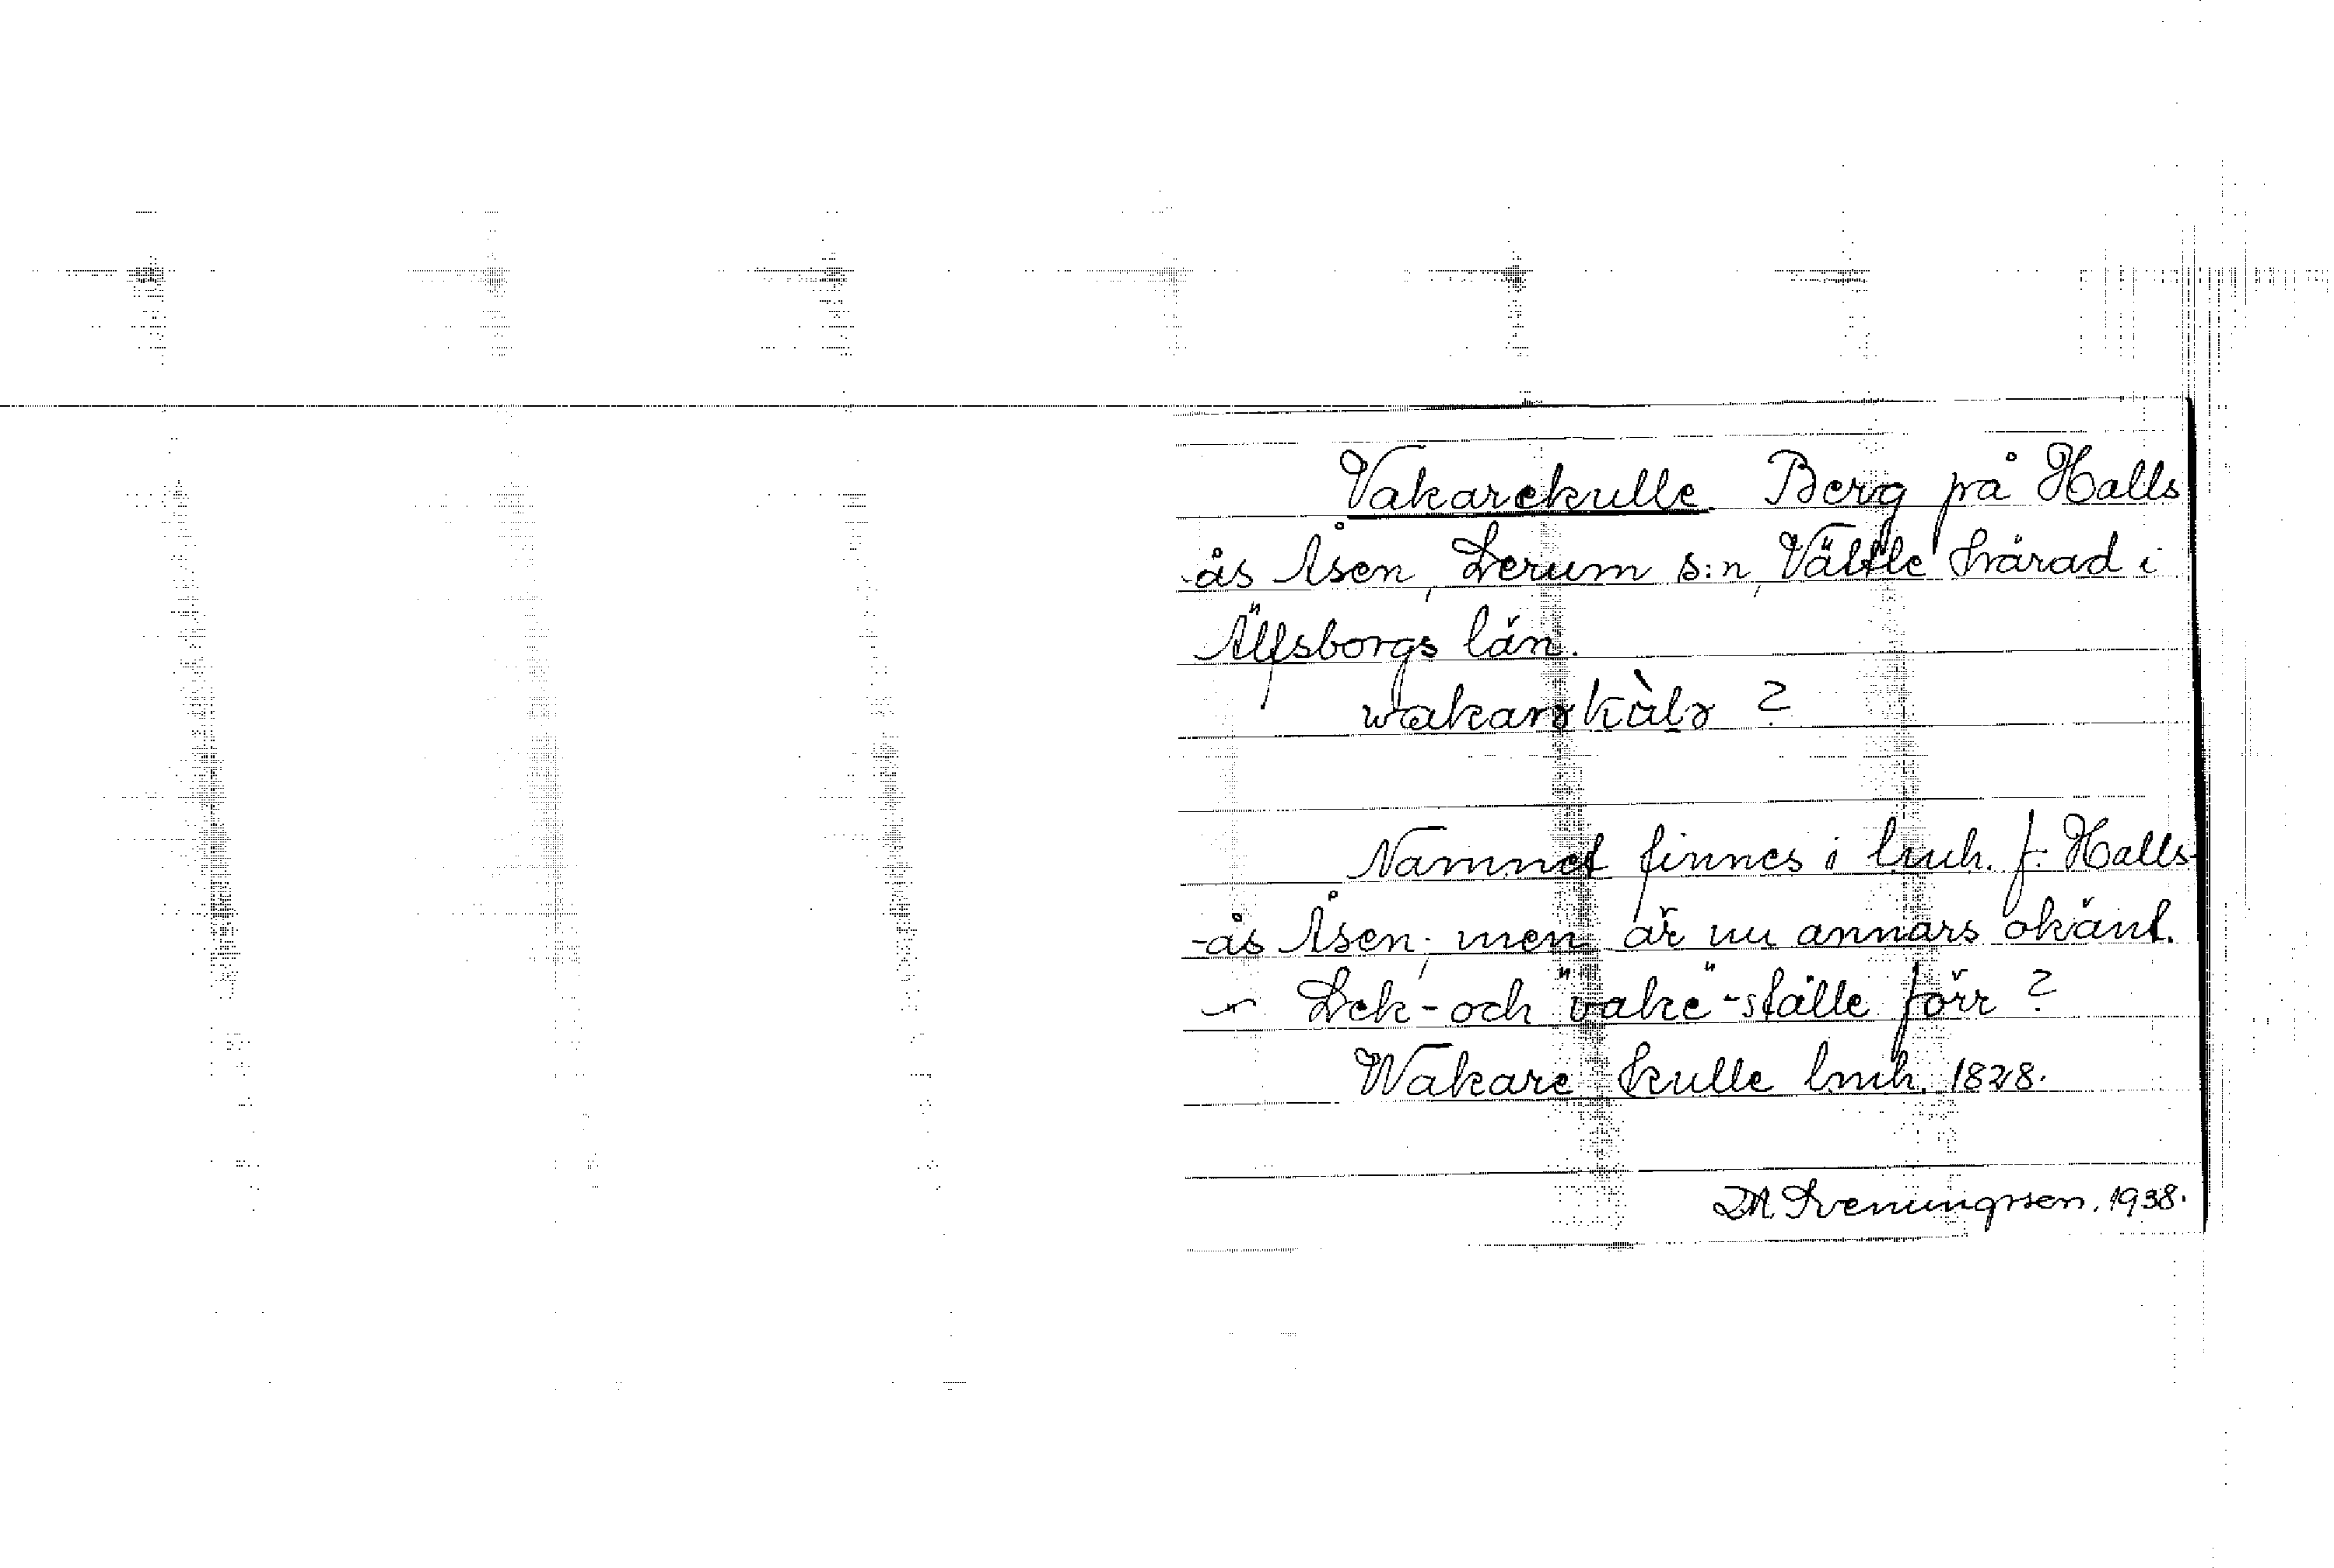 Vakarekulle Berg på Halls
-ås Åsen, Lerum s:n, Vättle härad i
Älfsborgs län.
?
Namnet finnes i lmh. f. Halls-
-ås Åsen; men är nu annars okänt.
- Lek- och "vake"-ställe förr?
Wakare kulle lmh. 1828.
D.A. Sveningsson. 1938.